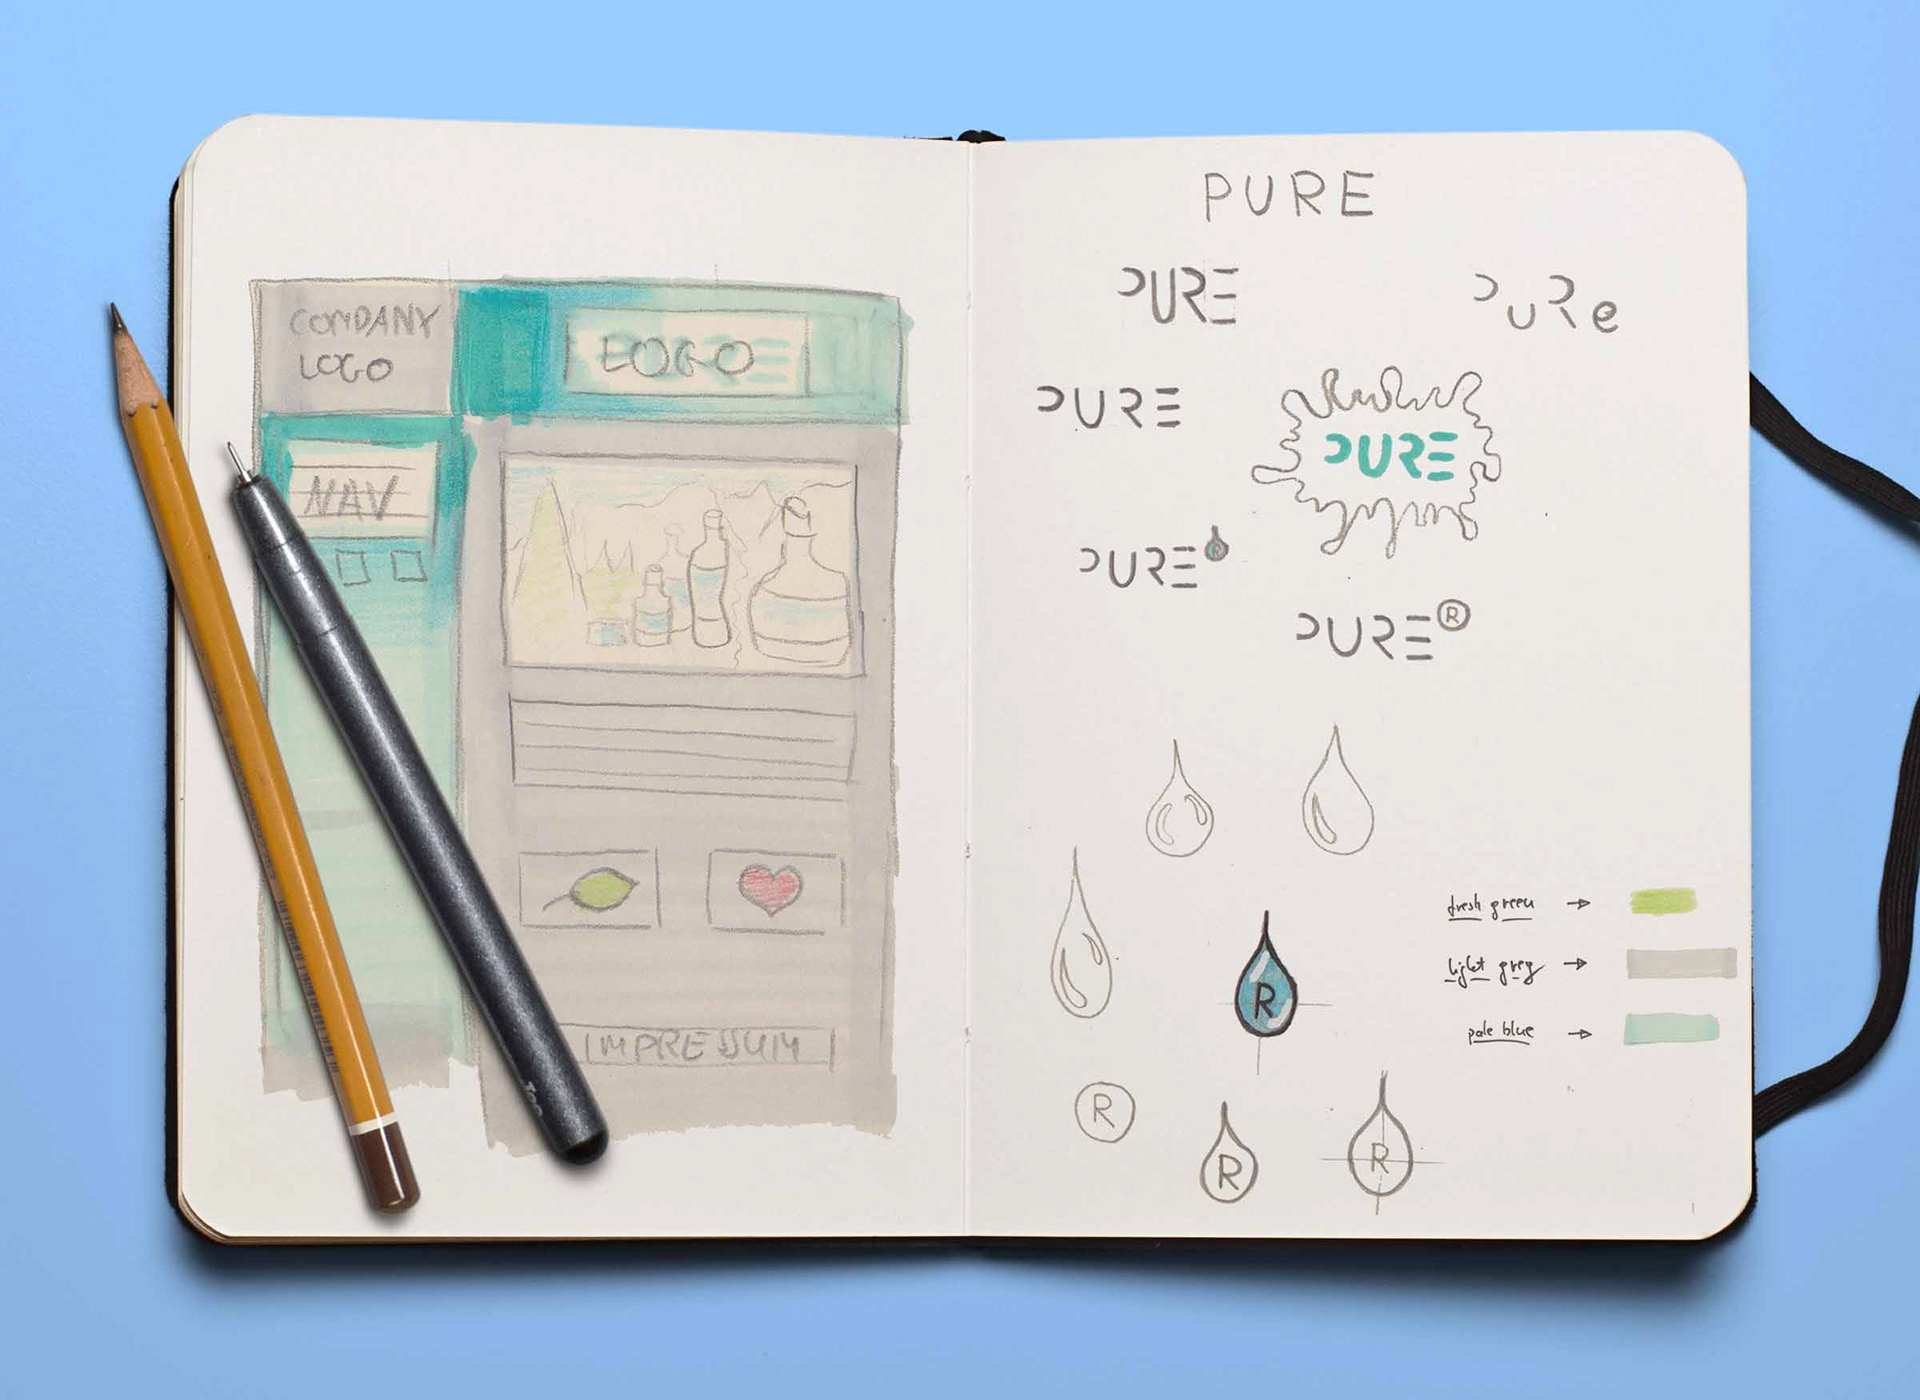 COMPANY
LOGO
LOGO
NAV
IMPRESSUM
PURE
PURE
PuRe
PURE
PURE
PURE R
PURE®
R
R
R
R
fresh green →
light grey →
pale blue →